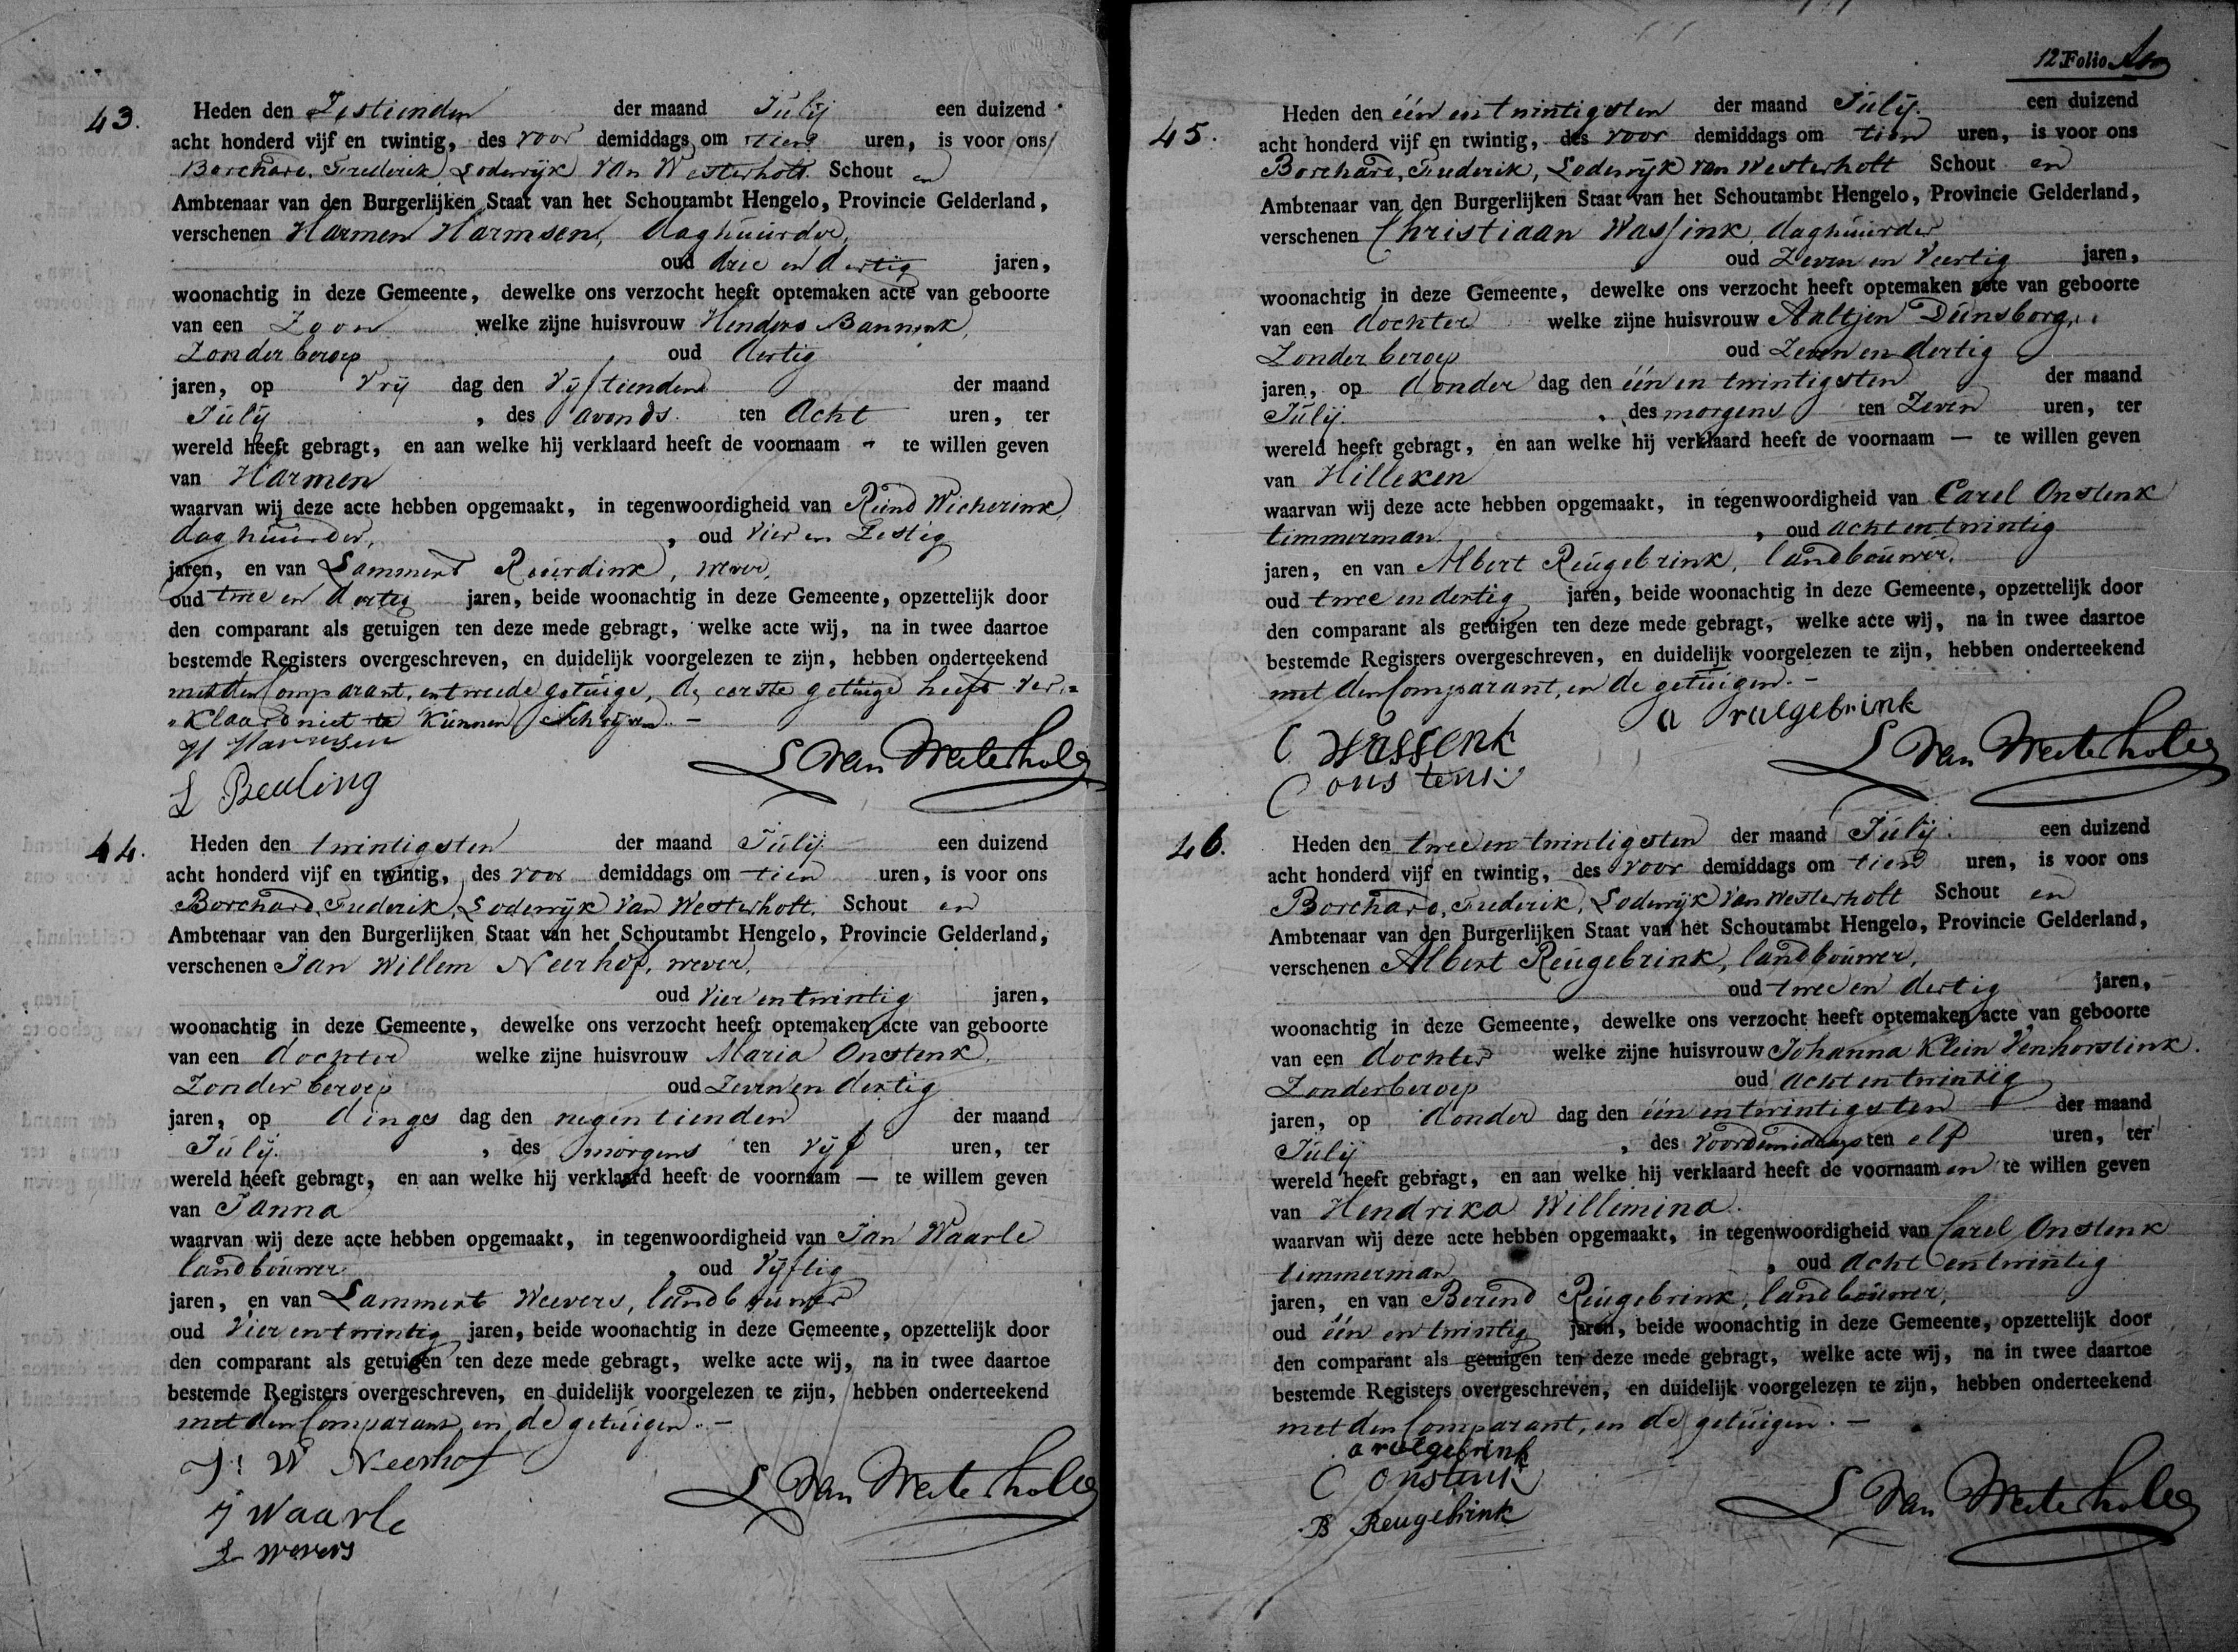 43.
Heden den Zestienden der maand Julij een duizend
acht honderd vijf en twintig, des voor demiddags om tien uren, is voor ons
Borchard, Frederik, Lodewijk van Westerholt Schout en
Ambtenaar van den Burgerlijken Staat van het Schoutambt Hengelo, Provincie Gelderland,
verschenen Harmen Harmsen, daghuurder,
oud drie en dertig jaren,
woonachtig in deze Gemeente, dewelke ons verzocht heeft optemaken acte van geboorte
van een Zoon welke zijne huisvrouw Henders Bannink,
Zonder beroep oud dertig
jaren, op Vrij dag den Vijftienden der maand
Julij, des avonds ten Acht uren, ter
wereld heeft gebragt, en aan welke hij verklaard heeft de voornaam - te willen geven
van Harmen
waarvan wij deze acte hebben opgemaakt, in tegenwoordigheid van Reind Wicherink,
daghuurder, oud Vier en Zestig
jaren, en van Lammert Ruurdink, wever,
oud twee en dertig jaren, beide woonachtig in deze Gemeente, opzettelijk door
den comparant als getuigen ten deze mede gebragt, welke acte wij, na in twee daartoe
bestemde Registers overgeschreven, en duidelijk voorgelezen te zijn, hebben onderteekend
met den Comparant, en tweede getuige, de eerste getuige heeft ver-
klaard niet te kunnen schrijven. -
H Harmsen
L Beuling
L Van Westerholt
44.
Heden den twintigsten der maand Julij een duizend
acht honderd vijf en twintig, des voor demiddags om tien uren, is voor ons
Borchard, Frederik, Lodewijk Van Westerholt, Schout en
Ambtenaar van den Burgerlijken Staat van het Schoutambt Hengelo, Provincie Gelderland,
verschenen Jan Willem Neerhof, wever,
oud Vier en twintig jaren,
woonachtig in deze Gemeente, dewelke ons verzocht heeft optemaken acte van geboorte
van een dochter welke zijne huisvrouw Maria Onstenk,
Zonder beroep oud Zeven en dertig
jaren, op dings dag den negentienden der maand
Julij, des morgens ten Vijf uren, ter
wereld heeft gebragt, en aan welke hij verklaard heeft de voornaam — te willem geven
van Janna
waarvan wij deze acte hebben opgemaakt, in tegenwoordigheid van Jan Waarle
landbouwer, oud Vijftig
jaren, en van Lammert Weevers, landbouwer
oud Vier en twintig jaren, beide woonachtig in deze Gemeente, opzettelijk door
den comparant als getuigen ten deze mede gebragt, welke acte wij, na in twee daartoe
bestemde Registers overgeschreven, en duidelijk voorgelezen te zijn, hebben onderteekend
met den Comparant, en de getuigen. -
J: W Neerhof
J Waarle
L wevers
L Van Westerholt
12 Folio
45.
Heden den één en twintigsten der maand Julij. een duizend
acht honderd vijf en twintig, des voor demiddags om tien uren, is voor ons
Borchard, Frederik, Lodewijk van Westerholt Schout en
Ambtenaar van den Burgerlijken Staat van het Schoutambt Hengelo, Provincie Gelderland,
verschenen Christiaan Wassink, daghuurder
oud Zeven en Veertig jaren,
woonachtig in deze Gemeente, dewelke ons verzocht heeft optemaken acte van geboorte
van een dochter welke zijne huisvrouw Aaltjen Dunsborg,
Zonder beroep oud Zeven en dertig
jaren, op donder dag den één en twintigsten der maand
Julij, des morgens ten Zeven uren, ter
wereld heeft gebragt, en aan welke hij verklaard heeft de voornaam — te willen geven
van Hilleken
waarvan wij deze acte hebben opgemaakt, in tegenwoordigheid van Carel Onstenk
timmerman, oud acht en twintig
jaren, en van Albert Reugebrink, landbouwer,
oud twee en dertig jaren, beide woonachtig in deze Gemeente, opzettelijk door
den comparant als getuigen ten deze mede gebragt, welke acte wij, na in twee daartoe
bestemde Registers overgeschreven, en duidelijk voorgelezen te zijn, hebben onderteekend
met den Comparant, en de getuigen. -
a rulgebrink
C Wassenk
C onstenk
L Van Westerholt
46.
Heden den twee en twintigsten der maand Julij. een duizend
acht honderd vijf en twintig, des voor demiddags om tien uren, is voor ons
Borchard, Frederik, Lodewijk Van Westerholt Schout en
Ambtenaar van den Burgerlijken Staat van het Schoutambt Hengelo, Provincie Gelderland,
verschenen Albert Reugebrink, landbouwer,
oud twee en dertig jaren,
woonachtig in deze Gemeente, dewelke ons verzocht heeft optemaken acte van geboorte
van een dochter welke zijne huisvrouw Johanna Klein Venhorstink.
Zonder beroep oud acht en twintig
jaren, op donder dag den één en twintigsten der maand
Julij, des Voordemiddags ten elf uren, ter
wereld heeft gebragt, en aan welke hij verklaard heeft de voornaam en te willen geven
van Hendrika Willemina.
waarvan wij deze acte hebben opgemaakt, in tegenwoordigheid van Carel Onstenk
timmerman, oud Acht en twintig
jaren, en van Berend Reugebrink, landbouwer,
oud één en twintig jaren, beide woonachtig in deze Gemeente, opzettelijk door
den comparant als getuigen ten deze mede gebragt, welke acte wij, na in twee daartoe
bestemde Registers overgeschreven, en duidelijk voorgelezen te zijn, hebben onderteekend
met den Comparant, en de getuigen. -
a rulgebrink
C onstenk
B Reugebrink
L Van Westerholt